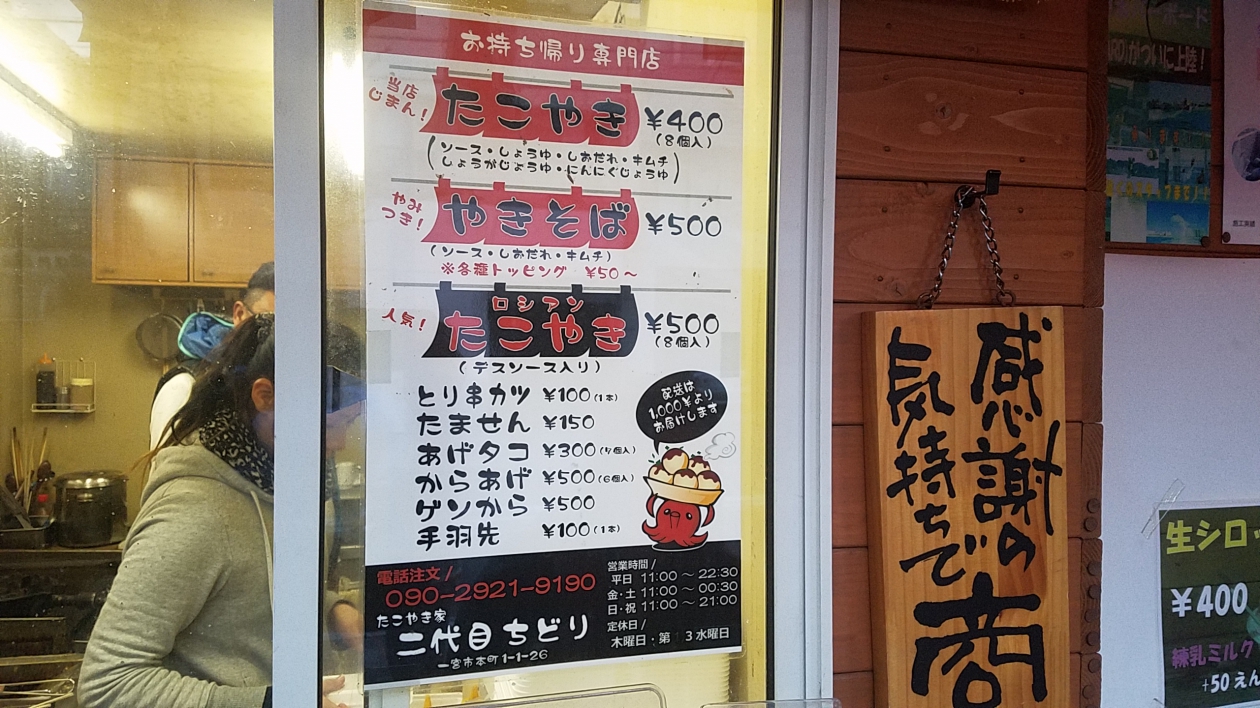 お持ち帰り専門店
当店
じまん!
たこやき ¥400
(8個入)
(ソース・しょうゆ・しおだれ・キムチ
しょうがじょうゆ・にんにくじょうゆ)
やみ
つき!
やきそば ¥500
(ソース・しおだれ・キムチ)
※各種トッピング ¥50～
人気!
ロシアン
たこやき ¥500
(8個入)
(デスソース入り)
とり串カツ ¥100(1本)
たません ¥150
あげタコ ¥300(7個入)
からあげ ¥500(6個入)
ゲソから ¥500
手羽先 ¥100(1本)
配送は
1,000¥より
お届けします
電話注文/
090-2921-9190
たこやき家
二代目ちどり
一宮市本町1-1-26
営業時間/
平日 11:00～22:30
金・土 11:00～00:30
日・祝 11:00～21:00
定休日/
木曜日・第13水曜日
感謝の
気持ちで
商
がついに上陸!
施工実績
生シロッ
¥400
練乳ミルク
+50えん